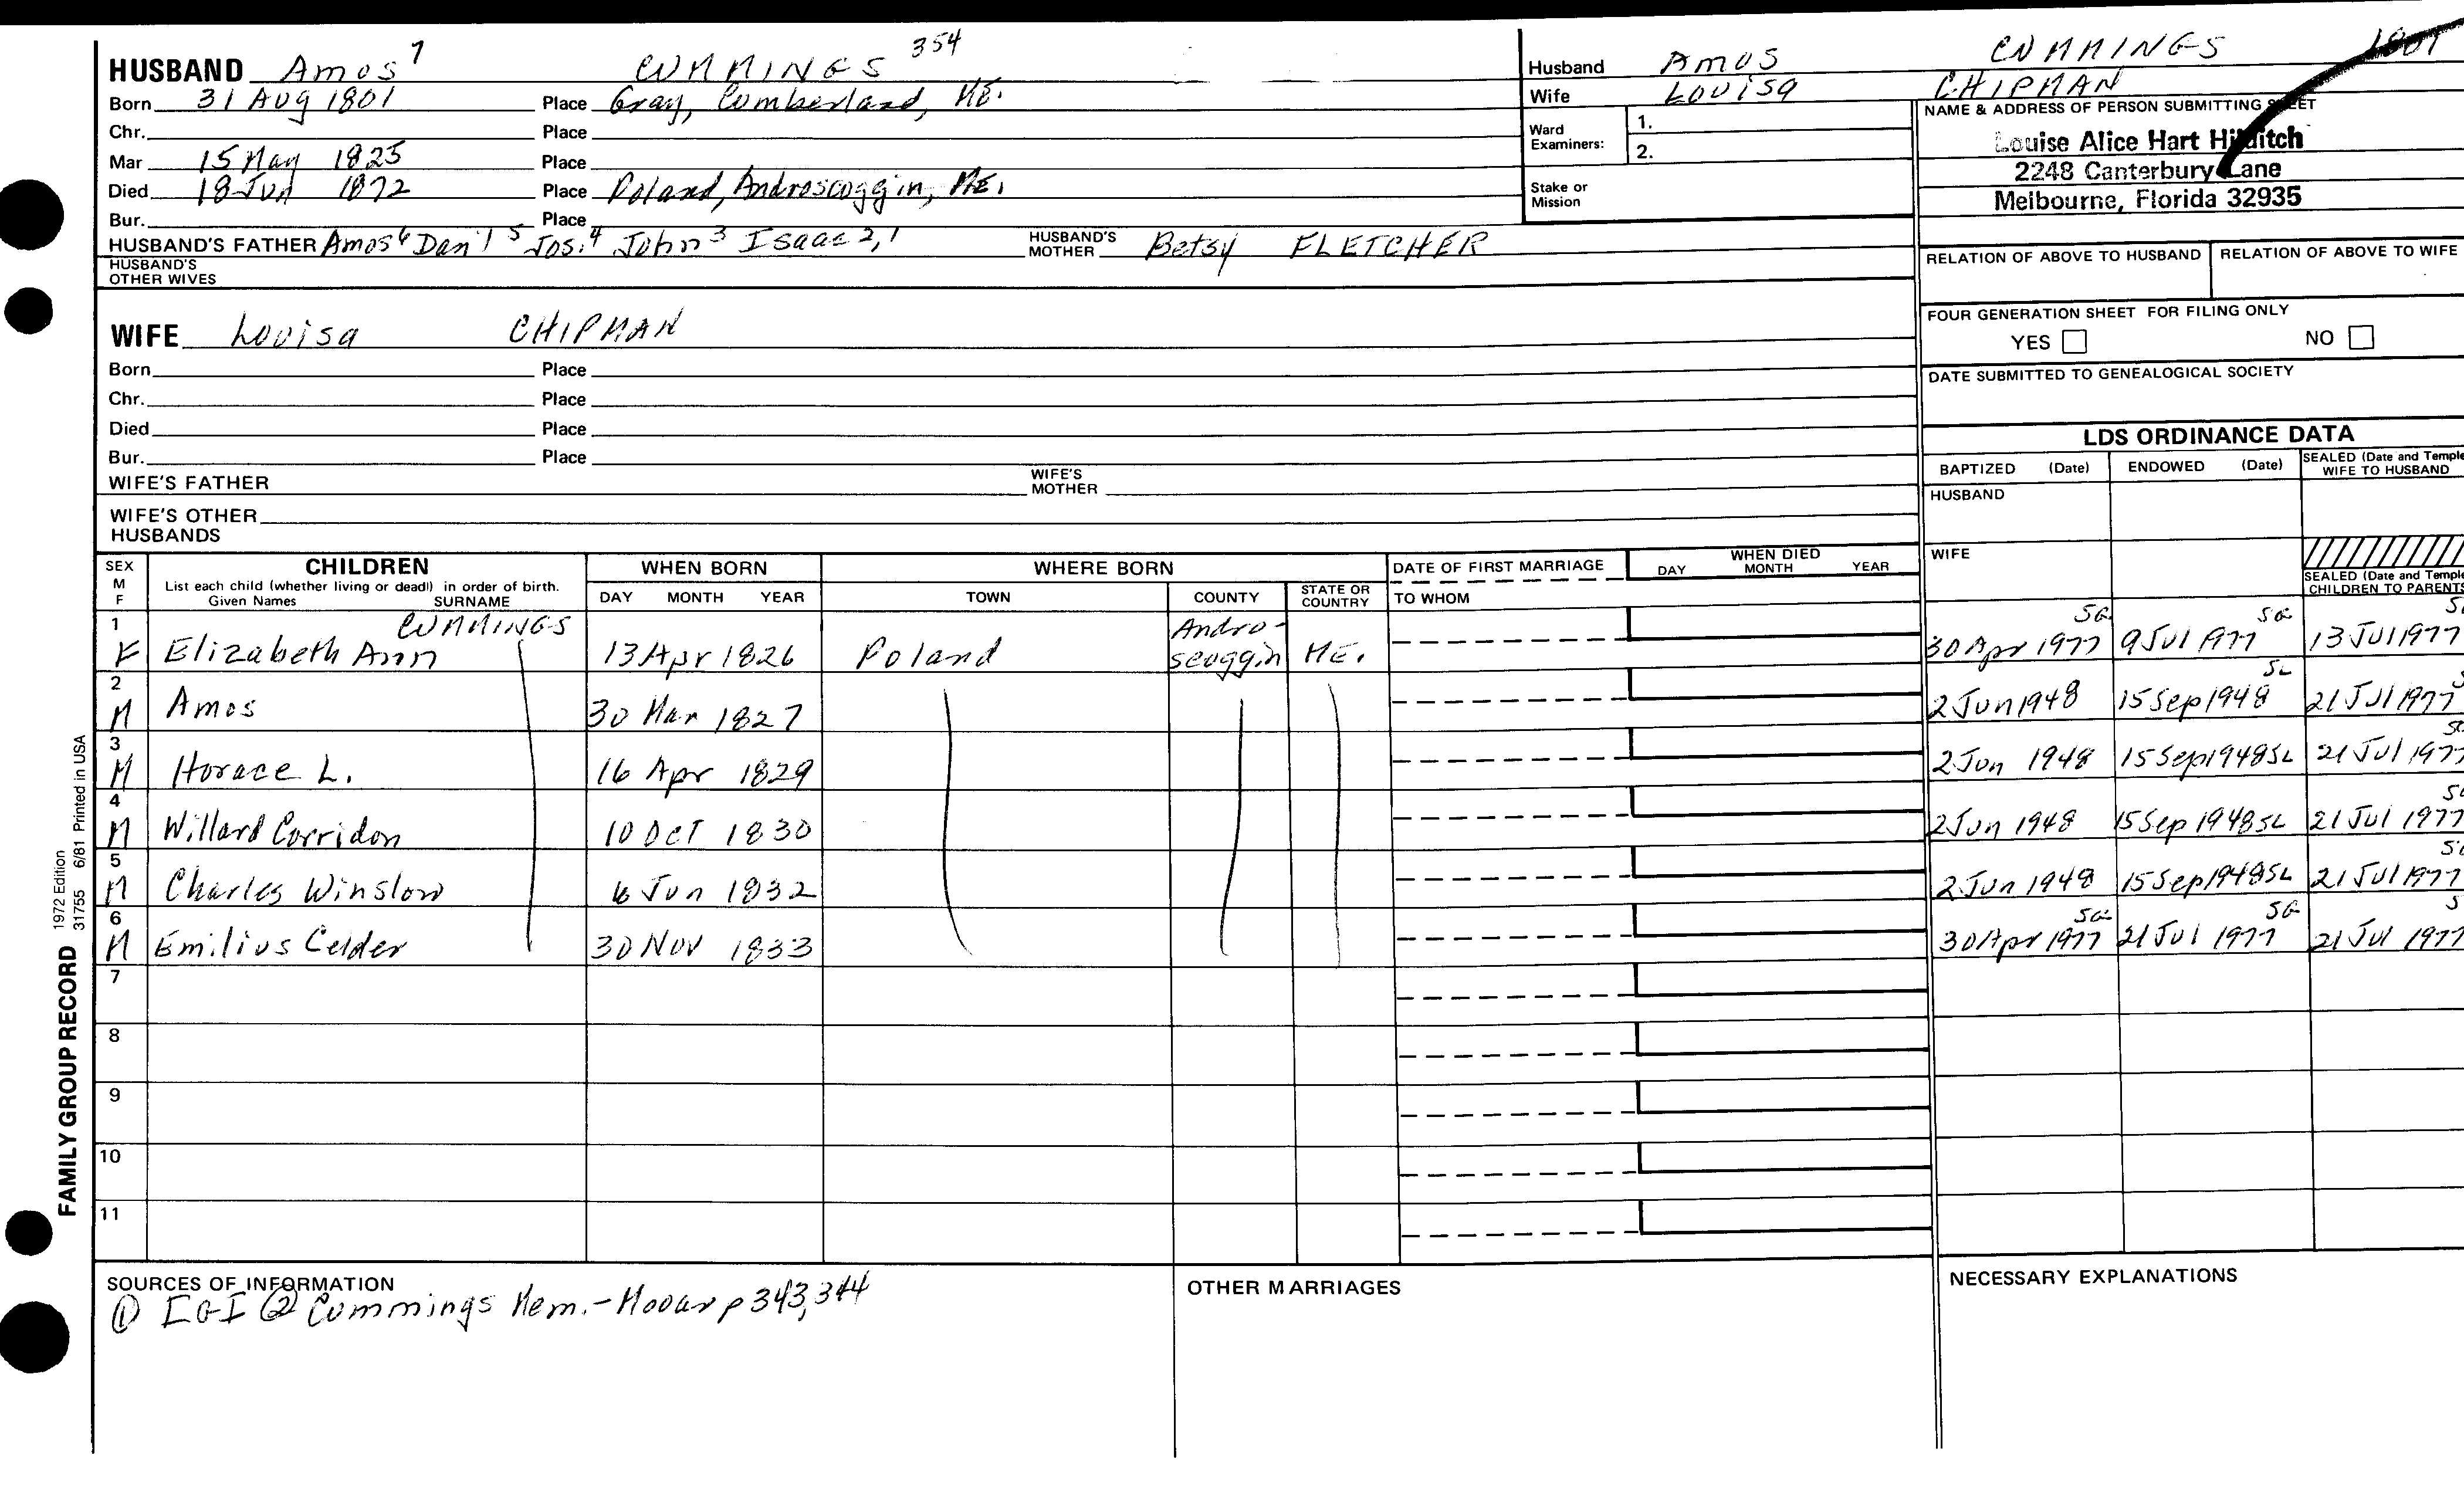 HUSBAND Amos 7 CUMMINGS 354
Born 31 Aug 1801 Place Gray, Cumberland, ME.
Chr. Place
Mar 15 May 1825 Place
Died 18 Jun 1872 Place Poland, Androscoggin, ME.
Bur. Place
HUSBAND'S FATHER Amos 6 Dan'l 5 Jos. 4 John 3 Isaac 2,1 HUSBAND'S MOTHER Betsy FLETCHER
HUSBAND'S OTHER WIVES
WIFE Louisa CHIPMAN
Born Place
Chr. Place
Died Place
Bur. Place
WIFE'S FATHER WIFE'S MOTHER
WIFE'S OTHER HUSBANDS
Husband Amos CUMMINGS 1801
Wife Louisa CHIPMAN
Ward Examiners: 1.
2.
Stake or Mission
NAME & ADDRESS OF PERSON SUBMITTING SHEET
Louise Alice Hart
2248 Canterbury Lane
Melbourne, Florida 32935
RELATION OF ABOVE TO HUSBAND RELATION OF ABOVE TO WIFE
FOUR GENERATION SHEET FOR FILING ONLY
YES NO
DATE SUBMITTED TO GENEALOGICAL SOCIETY
LDS ORDINANCE DATA
BAPTIZED (Date) ENDOWED (Date) SEALED (Date and Temple WIFE TO HUSBAND
HUSBAND
WIFE
SEALED (Date and Temple CHILDREN TO PARENTS
SEX M F CHILDREN WHEN BORN WHERE BORN DATE OF FIRST MARRIAGE WHEN DIED
List each child (whether living or dead) in order of birth.
Given Names SURNAME DAY MONTH YEAR TOWN COUNTY STATE OR COUNTRY TO WHOM DAY MONTH YEAR
1 F Elizabeth Ann CUMMINGS 13 Apr 1826 Poland Andro-scoggin ME. 30 Apr 1977 SG 9 Jul 1977 SG 13 Jul 1977
2 M Amos 30 Mar 1827 2 Jun 1948 15 Sep 1948 SL 21 Jul 1977
3 M Horace L. 16 Apr 1829 2 Jun 1948 15 Sep 1948 SL 21 Jul 1977
4 M Willard Corridon 10 Oct 1830 2 Jun 1948 15 Sep 1948 SL 21 Jul 1977
5 M Charles Winslow 6 Jun 1832 2 Jun 1948 15 Sep 1948 SL 21 Jul 1977
6 M Emilius Celder 30 Nov 1833 30 Apr 1977 SG 21 Jul 1977 SG 21 Jul 1977
7
8
9
10
11
SOURCES OF INFORMATION
① IGI ② Cummings Mem. - Mooar p 343, 344
OTHER MARRIAGES
NECESSARY EXPLANATIONS
FAMILY GROUP RECORD 1972 Edition
31755 6/81 Printed in USA